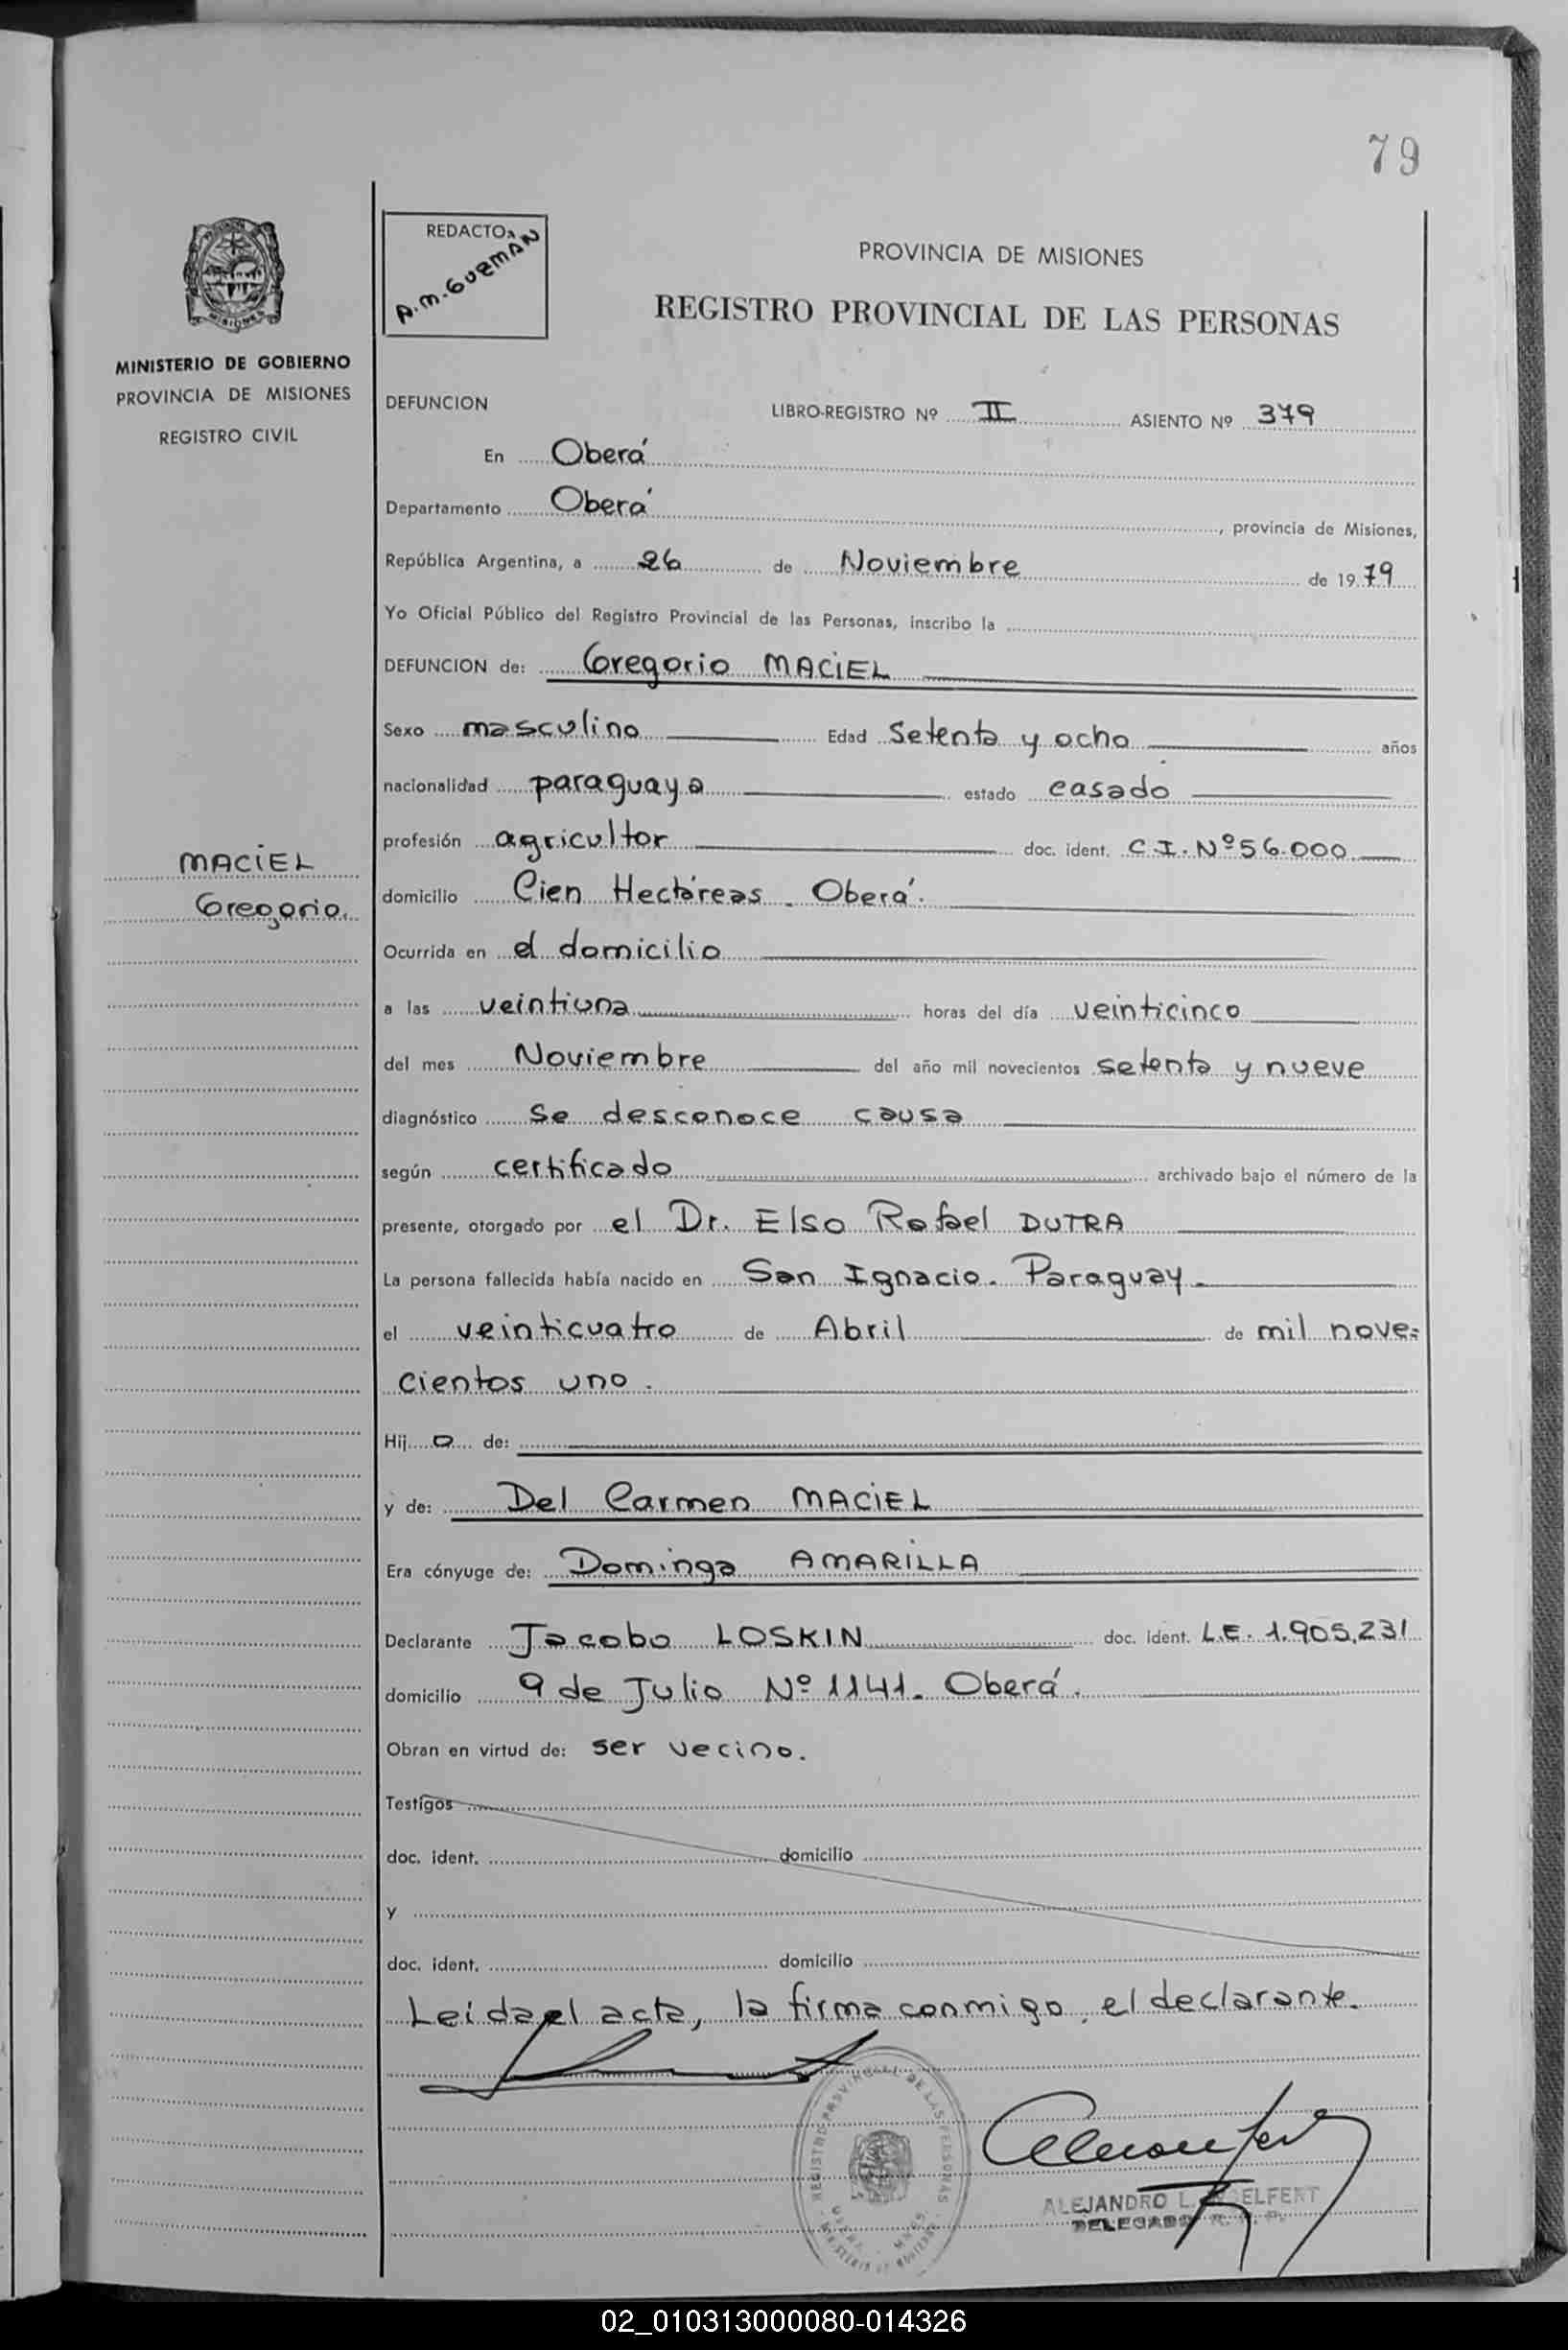 79
REDACTO:
A.M. GUZMAN
PROVINCIA DE MISIONES
REGISTRO PROVINCIAL DE LAS PERSONAS
MISIONES
MINISTERIO DE GOBIERNO
PROVINCIA DE MISIONES
REGISTRO CIVIL
DEFUNCION LIBRO-REGISTRO Nº II ASIENTO Nº 379
En Oberá
Departamento Oberá, provincia de Misiones,
República Argentina, a 26 de Noviembre de 1979
Yo Oficial Público del Registro Provincial de las Personas, inscribo la
DEFUNCION de: Gregorio MACIEL
Sexo masculino Edad Setenta y ocho años
nacionalidad paraguaya estado casado
MACIEL
Gregorio.
profesión agricultor doc. ident. C.I. Nº 56.000
domicilio Cien Hectáreas - Oberá.
Ocurrida en el domicilio
a las veintiuna horas del día veinticinco
del mes Noviembre del año mil novecientos setenta y nueve
diagnóstico Se desconoce causa
según certificado archivado bajo el número de la
presente, otorgado por el Dr. Elso Rafael DUTRA
La persona fallecida había nacido en San Ignacio - Paraguay -
el veinticuatro de Abril de mil nove=
cientos uno.
Hij o de:
y de: Del Carmen MACIEL
Era cónyuge de: Dominga AMARILLA
Declarante Jacobo LOSKIN doc. ident. L.E. 1.905.231
domicilio 9 de Julio Nº 1141 - Oberá.
Obran en virtud de: ser vecino.
Testigos
doc. ident. domicilio
y
doc. ident. domicilio
Leida el acta, la firma conmigo, el declarante.
REGISTRO PROVINCIAL DE LAS PERSONAS
ALEJANDRO L.
DELEGADO R. P. P.
02_010313000080-014326